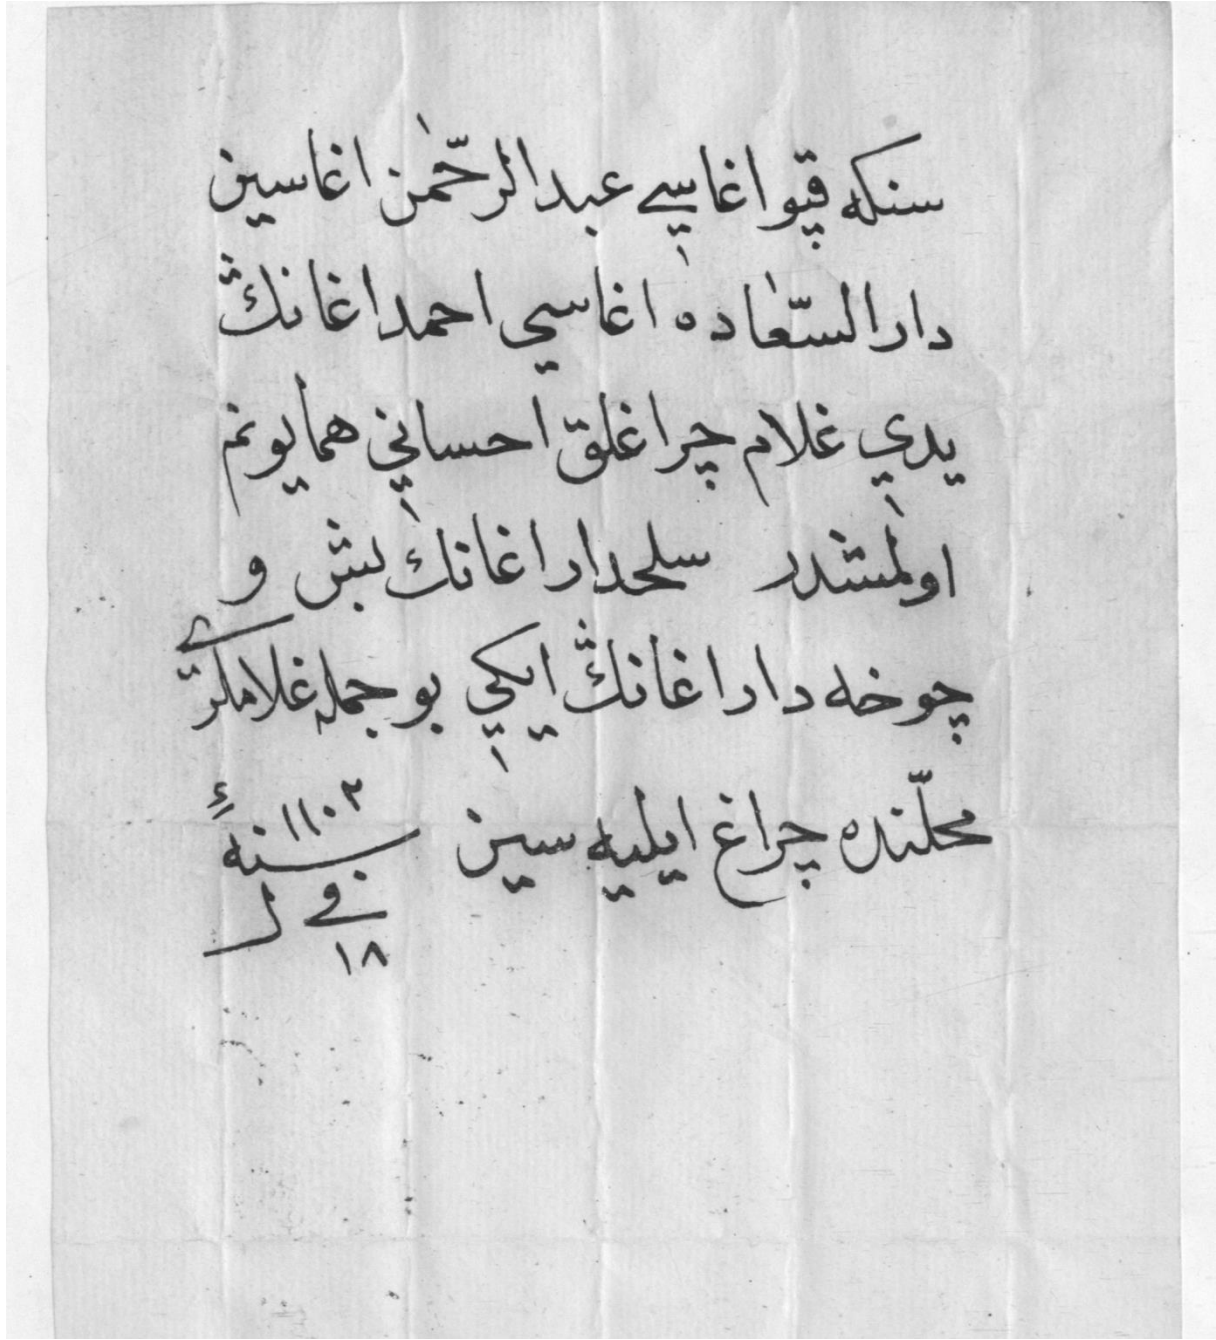 سنكه قپو اغاسي عبد الرحّمٰن اغاسين
دار السّعاده اغاسي احمد اغانڭ
يدي غلام چراغلق احساني همايونم
اولمشدر سلحدار اغانك بش و
چوخه دار اغانڭ ايكي بو جمله غلاملري
محلّنده چراغ ايليه سين
سنهٔ ١١٠٢
في ١٨ ل